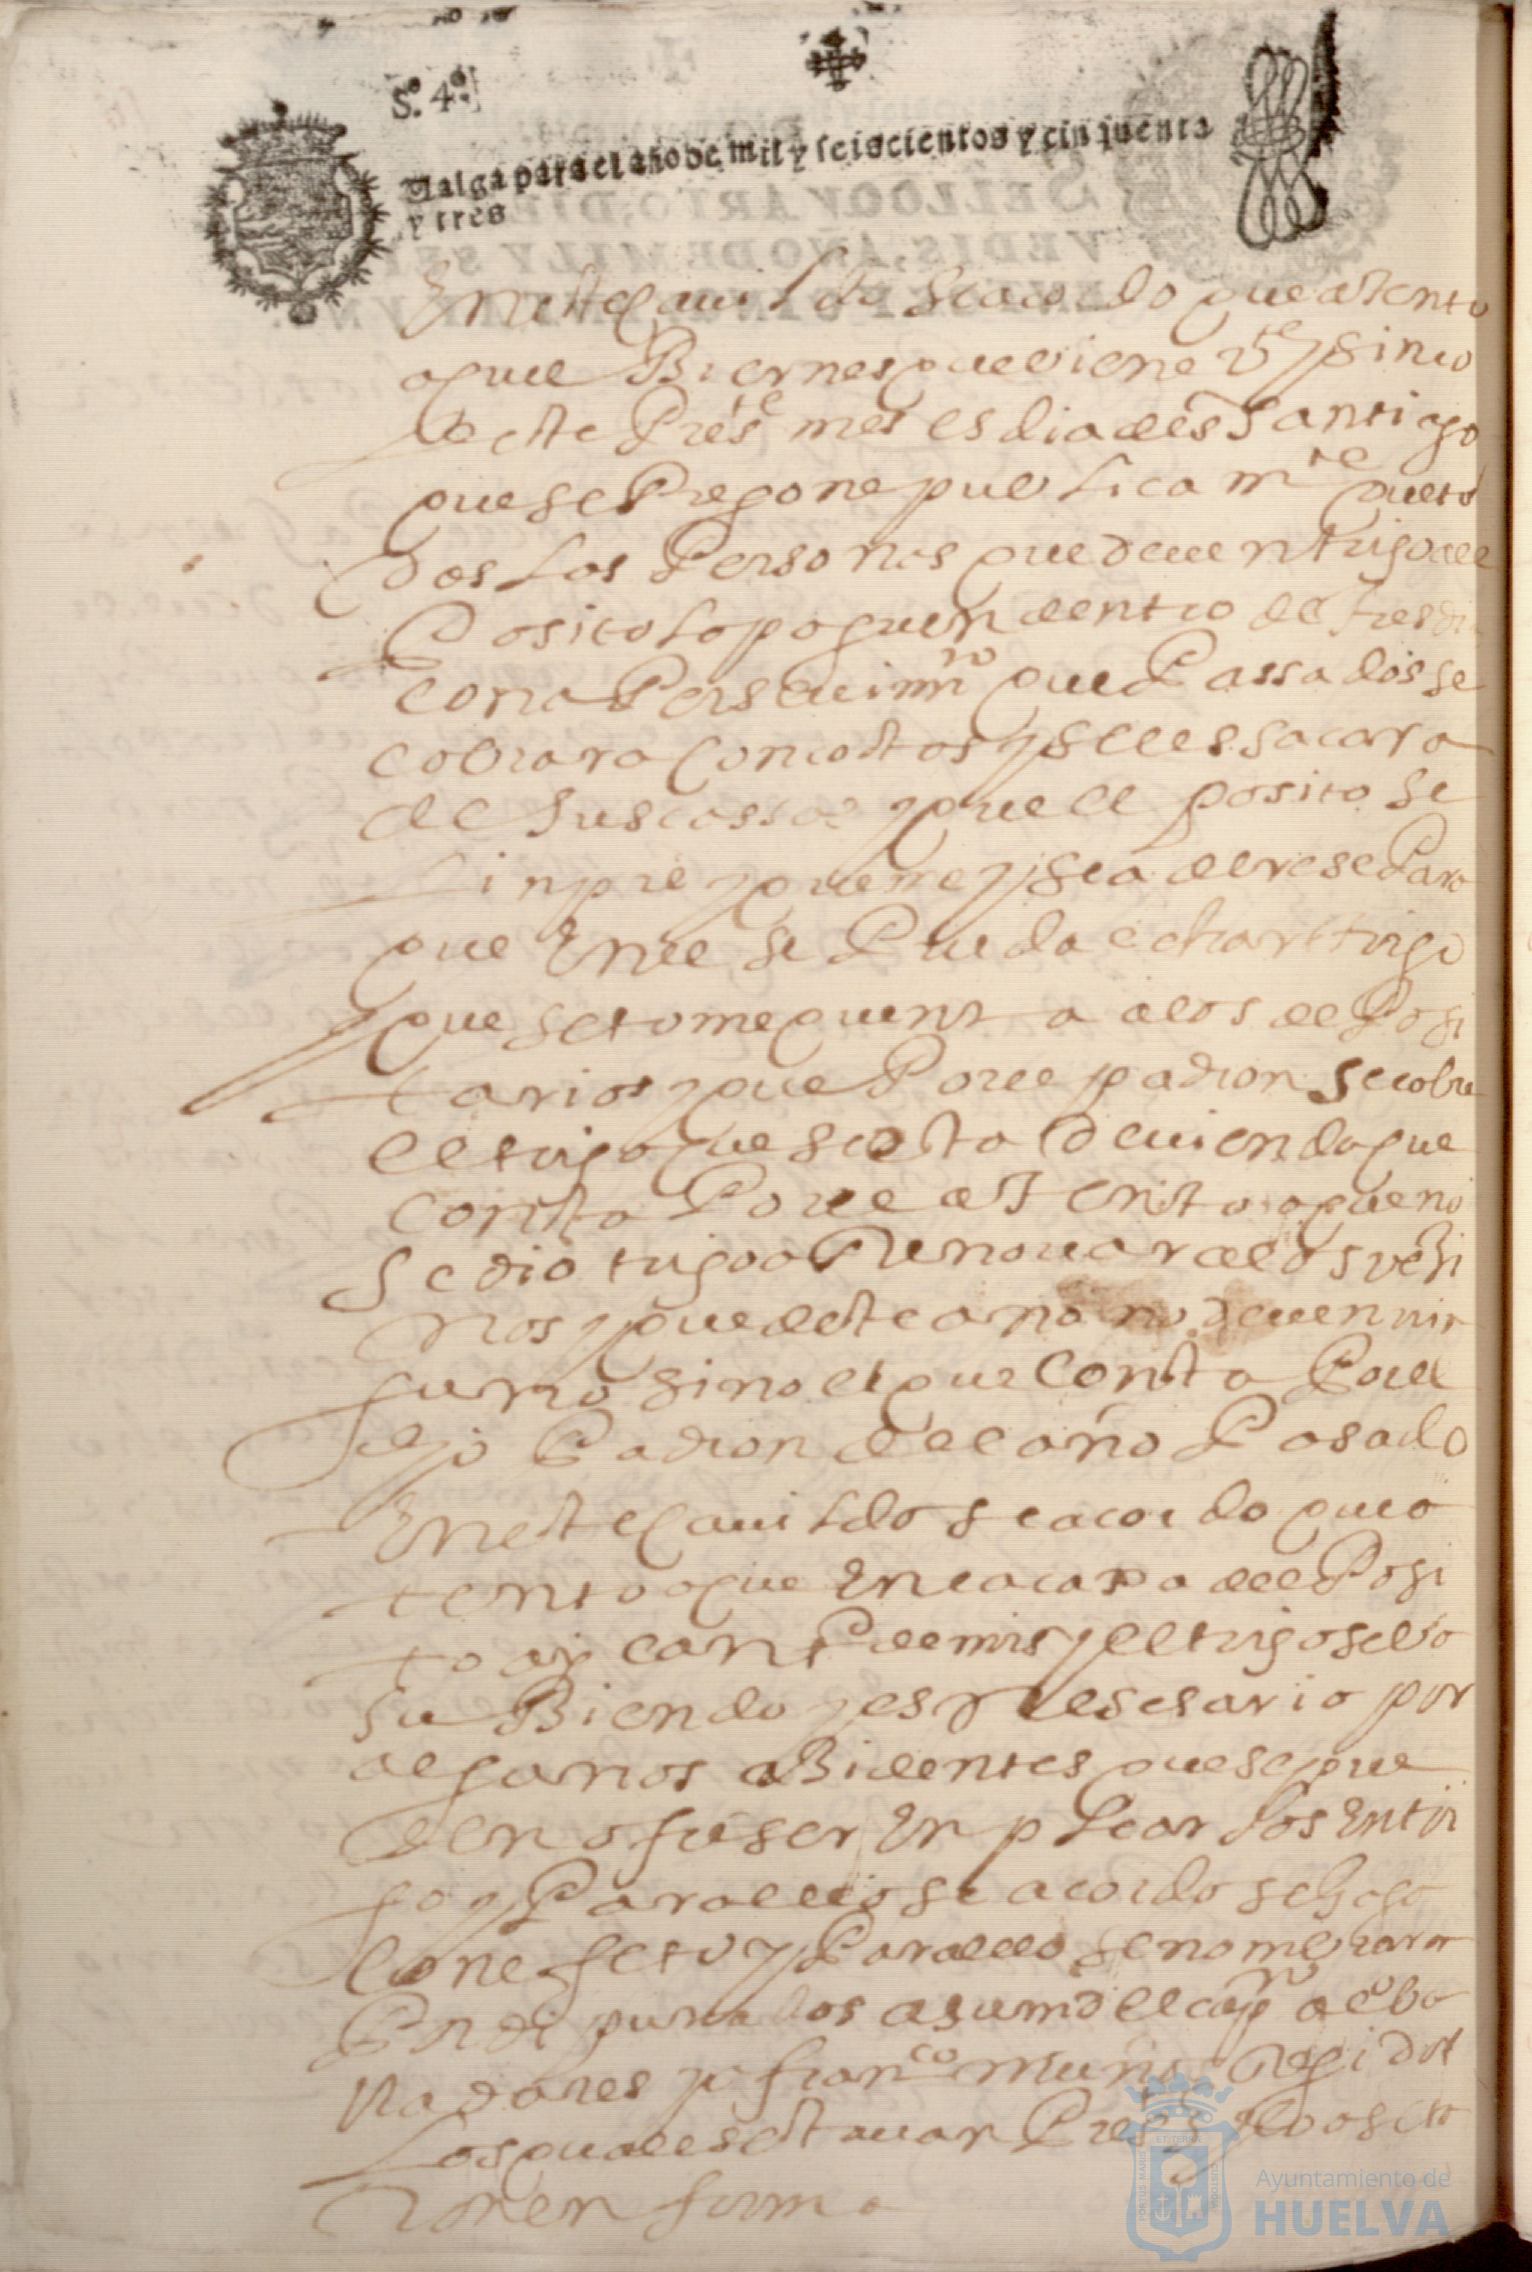 Sº. 4º.
Valga para el año de mil y seiscientos y cinquenta
y tres
SELLO QVARTO, DIE
VEDIS, AÑO DE MIL Y SEI
En este Cauildo se acordo que atento
a que Biernes que viene Vte y sinco
de este Preste mes es dia de sr Santiago
que se Pregone publicamte que to
dos los Personas que deuen trigo all
Posito lo paguen dentro de tres di
con aPerseuimro que Passados se
cobrara Con costos y se les sacara
de sus cassas y que el posito se
linpie y queme y se aderese Para
que En el se Pueda echar trigo
y que se tome quenta a los de Posi
tarios y que Por el padron se cobre
el trigo que se esta deuiendo que
consta Por el atento a que no
se dio trigo a Renouar a los vesi
nos y que de este ano no deuen nin
guno sino el que Consta Por el
dejo Padron del año Pasado
En este Cauildo se acordo que a
tento a que En la caxa del Posi
to ay cant de mrs y el trigo se ba
su Biendo y es Nesesario por
algunos aBidentes que se pue
den ofreser En plear los En tri
go y Para ello se acordo se haga
Con efecto y Para ello se nombraron
Por diputados a sumd el capn aluo
Nadores y a franco muños Regidor
Los quales estauan Presos y lo aseta
ron en forma
Ayuntamiento de
HUELVA